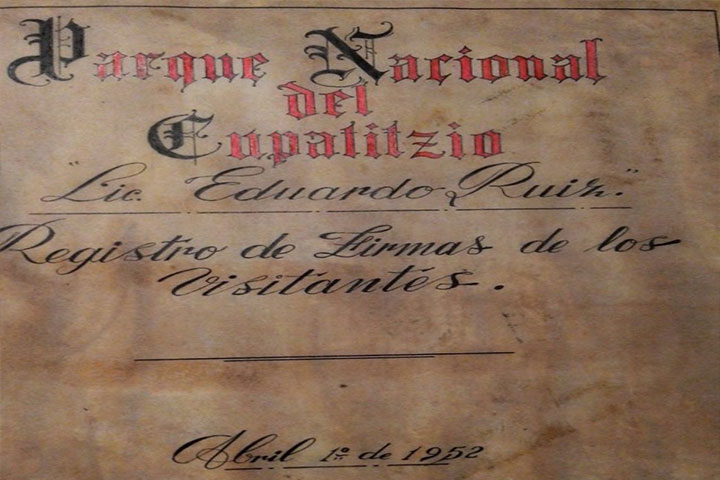 Parque Nacional
del
Cupatitzio
"Lic. Eduardo Ruiz."
Registro de Firmas de los
Visitantés.
Abril 1º de 1952